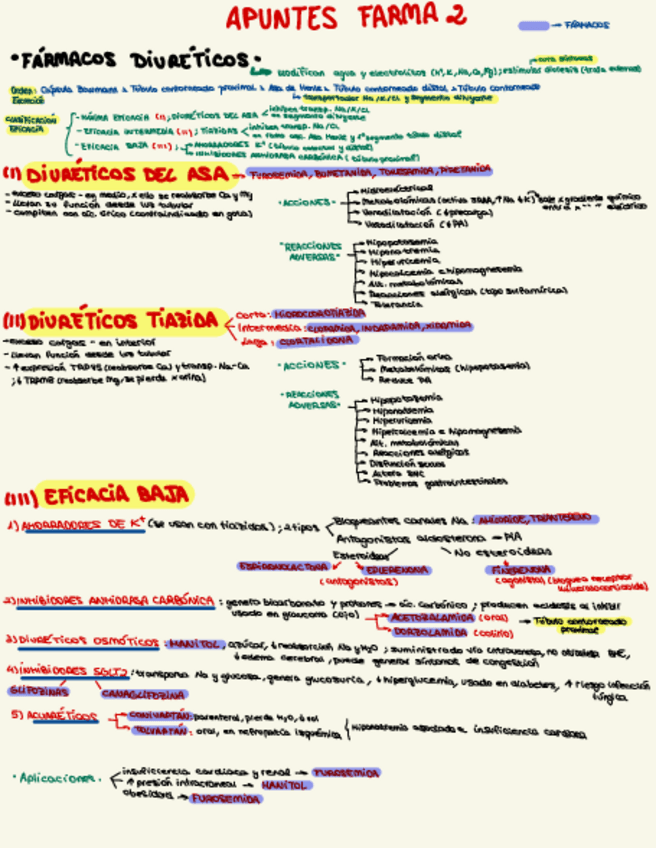 APUNTES FARMA 2
→ FÁRMACOS
• FÁRMACOS DIURÉTICOS •
→ Modifican agua y electrolitos (H⁺, K, Na, Cl, Mg); estimulan diuresis (trata edemas)
→ cura síntomas
Orden: Cápsula Bowmann → Túbulo contorneado proximal → Asa de Henle → Túbulo contorneado distal → Túbulo contorneado
→ transportador Na/K/Cl y segmento diluyente
CLASIFICACIÓN EFICACIA
- MÁXIMA EFICACIA (I); DIURÉTICOS DEL ASA
inhiben transp. Na/K/Cl
en segmento diluyente
- EFICACIA INTERMEDIA (II); TIAZIDAS
inhiben transp. Na/Cl
- EFICACIA BAJA (III);
AHORRADORES K⁺
INHIBIDORES ANHIDRASA CARBÓNICA (túbulo proximal)
(I) DIURÉTICOS DEL ASA → FUROSEMIDA, BUMETANIDA, TORASEMIDA, PIRETANIDA
- exceso cargas - en medio, x ello se reabsorbe Ca y Mg
- llevan su función desde luz tubular
- compiten con ác. úrico (contraindicado en gota)
"ACCIONES"
Hidroeléctricas
Venodilatación (↓precarga)
Vasodilatación (↓PA)
"REACCIONES ADVERSAS"
Hipopotasemia
Hiponatremia
Hiperuricemia
Hipocalcemia e hipomagnesemia
Alt. metabólicas
Reacciones alérgicas (tipo sulfamídica)
Tolerancia
(II) DIURÉTICOS TIAZIDA
Corta: HIDROCLOROTIAZIDA
Intermedia: CLOPAMIDA, INDAPAMIDA, XIPAMIDA
Larga: CLORTALIDONA
- exceso cargas - en interior
- llevan función desde luz tubular
- ↑ expresión TRPV5 (reabsorbe Ca) y transp. Na-Ca
; ↓ TRPM6 (reabsorbe Mg, se pierde x orina)
"ACCIONES"
Formación orina
Metabolómicas (hipopotasemia)
Reduce PA
"REACCIONES ADVERSAS"
Hipopotasemia
Hiponatremia
Hiperuricemia
Hipercalcemia e hipomagnesemia
Alt. metabolómicas
Reacciones alérgicas
Disfunción sexual
Altera SNC
Problemas gastrointestinales
(III) EFICACIA BAJA
1) AHORRADORES DE K⁺ (se usan con tiazidas); 2 tipos
Bloqueantes canales Na: AMILORIDE, TRIAMTERENO
Antagonistas aldosterona → PIA
Esteroideas
No esteroideas
ESPIRONOLACTONA
EPLERENONA
(antagonistas)
FINERENONA
(agonista) (bloquea receptor mineralocorticoide)
2) INHIBIDORES ANHIDRASA CARBÓNICA: genera bicarbonato y protones → ác. carbónico; producen acidosis al inhibir
usado en glaucoma (ojo)
ACETOZALAMIDA (oral)
DORZOLAMIDA (colirio)
→ Túbulo contorneado proximal
3) DIURÉTICOS OSMÓTICOS: MANITOL, azúcar, ↓ reabsorción Na y H₂O; suministrado vía intravenosa, no atraviesa BHE,
↓ edema cerebral, puede generar síntomas de congestión
4) INHIBIDORES SGLT2: transporta Na y glucosa, genera glucosuria, ↓ hiperglucemia, usado en diabetes, ↑ riesgo infección fúngica
GLIFOZINAS
CANAGLIFOZINAS
5) ACUARÉTICOS
CONIVAPTÁN: parenteral, pierde H₂O,
TOLVAPTÁN: oral, en nefropatía
Hiponatremia asociada e insuficiencia cardíaca
• Aplicaciones.
insuficiencia cardíaca y renal → FUROSEMIDA
↑ presión intracraneal → MANITOL
obesidad → FUROSEMIDA